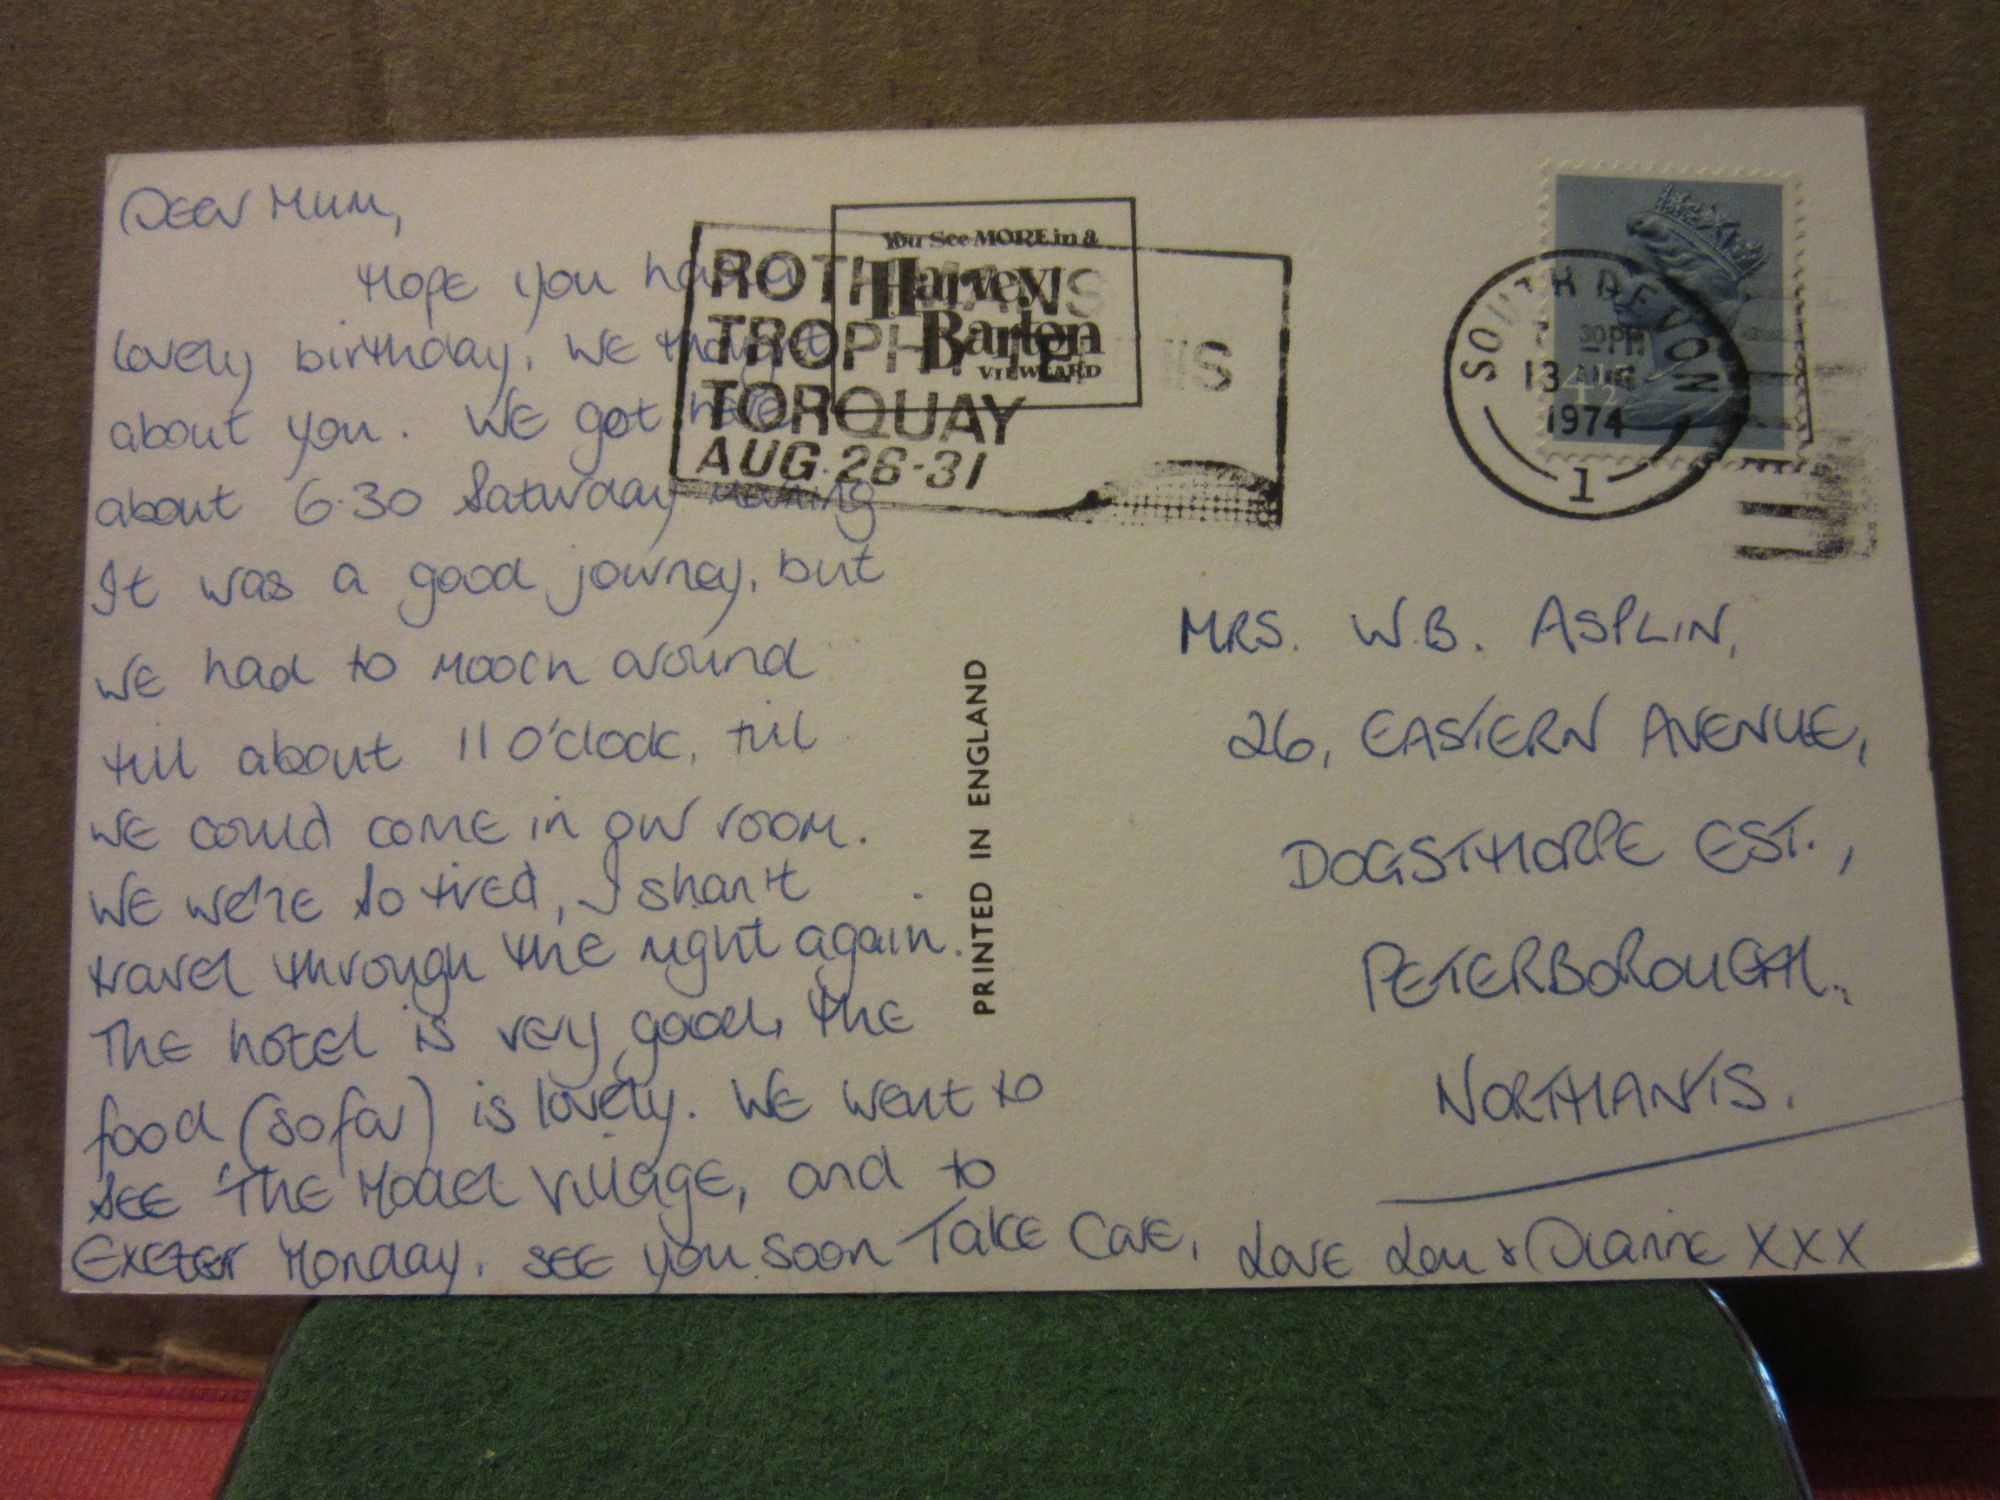 Dear Mum,
Hope you had a
lovely birthday, we thought
about you. We got here
about 6.30 Saturday morning
It was a good journey, but
we had to mooch around
till about 11 o'clock, till
we could come in our room.
We we're so tired, I shan't
travel through the night again.
The hotel is very good, the
food (so far) is lovely. We went to
see 'The Model Village, and to
Exeter Monday. See you soon Take Care, Love Lou & Dianne XXX
You See MORE in a
Harvey
Barton
VIEWCARD
ROTHMANS
TROPHY TENNIS
TORQUAY
AUG. 26-31
SOUTH DEVON
30PM
13 AUG
1974
1
PRINTED IN ENGLAND
MRS. W.B. ASPLIN,
26, EASTERN AVENUE,
DOGSTHORPE EST.,
PETERBOROUGH.,
NORTHANTS.